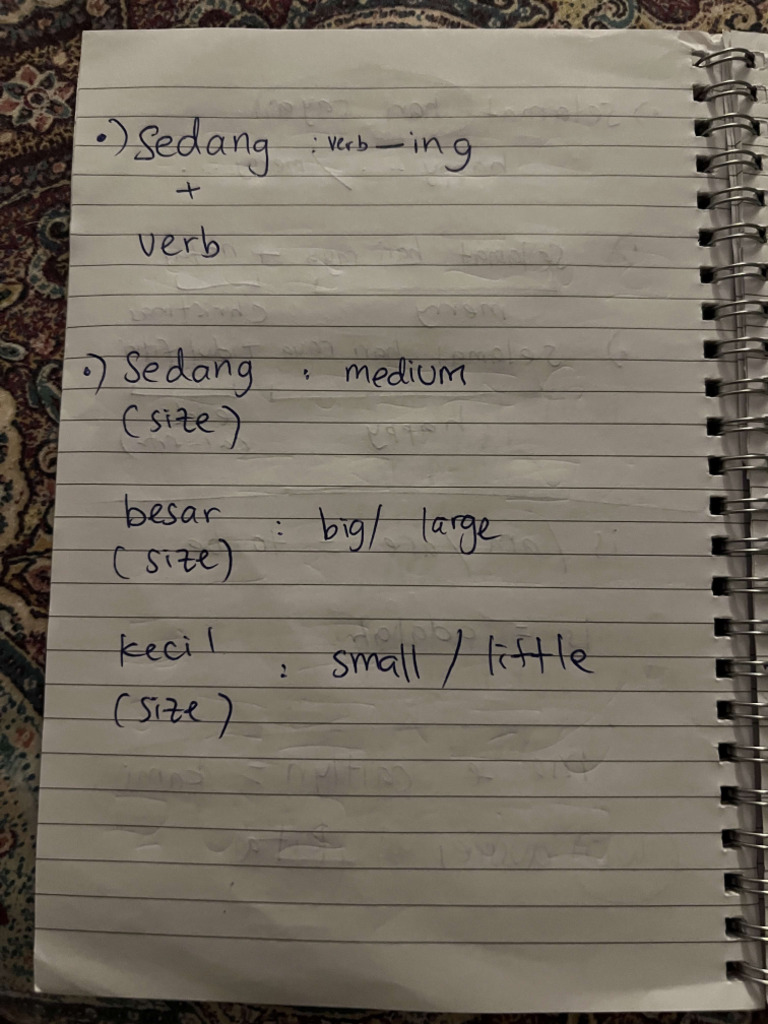 •) Sedang : verb-ing
+
verb
•) Sedang : medium
(size)
besar : big/ large
(size)
kecil : small / little
(size)